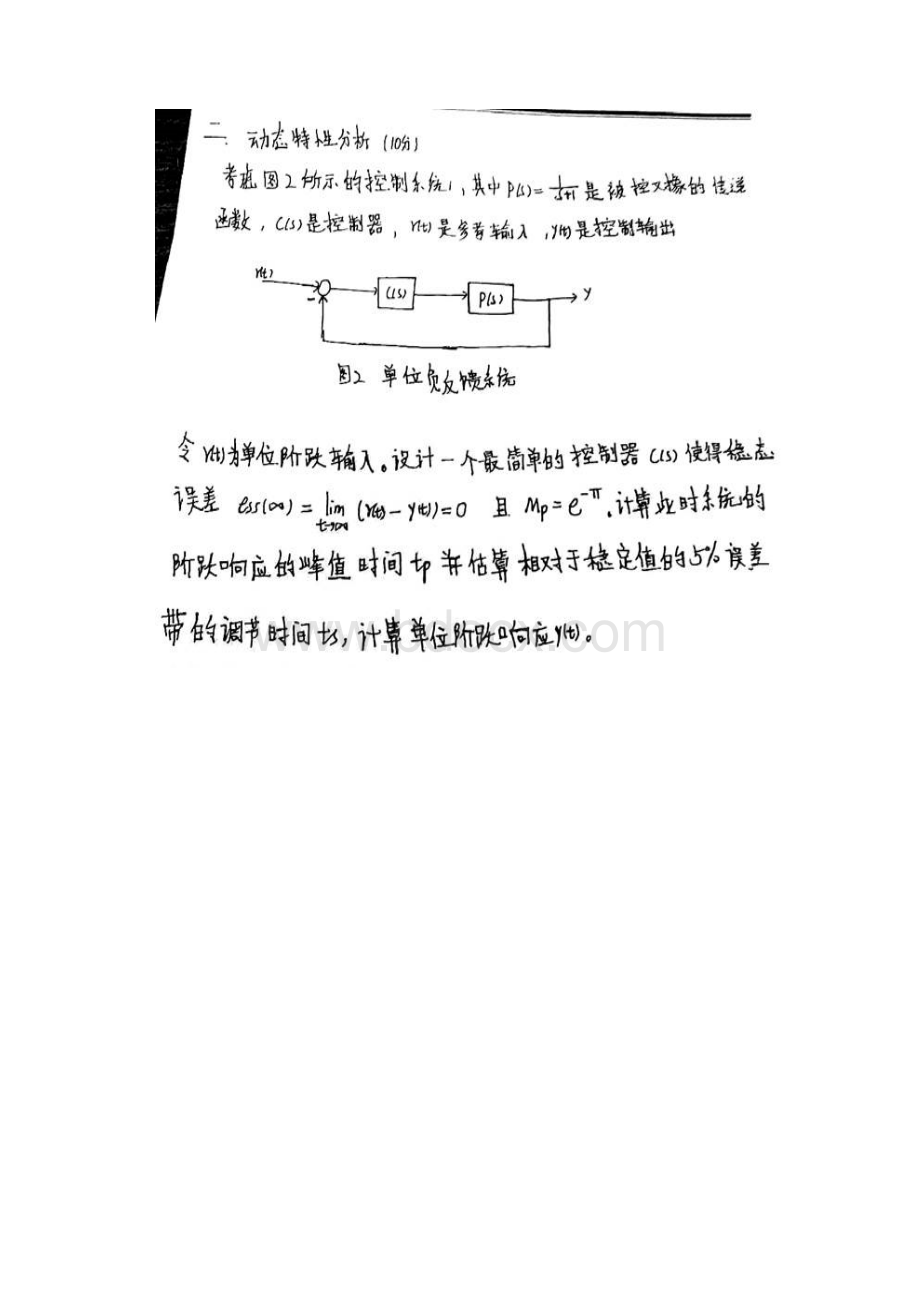 二. 动态特性分析 (10分)
考虑图2所示的控制系统, 其中 P(s)=1/(s+1) 是被控对象的传递
函数, C(s)是控制器, r(t)是参考输入, y(t)是控制输出
r(t)
-
C(s)
P(s)
y
图2 单位负反馈系统
令r(t)为单位阶跃输入。设计一个最简单的控制器 C(s) 使得稳态
误差 ess(∞) = lim t→∞ (r(t) - y(t)) = 0 且 Mp = e^-π. 计算此时系统的
阶跃响应的峰值时间tp并估算相对于稳定值的5%误差
带的调节时间ts, 计算单位阶跃响应y(t)。